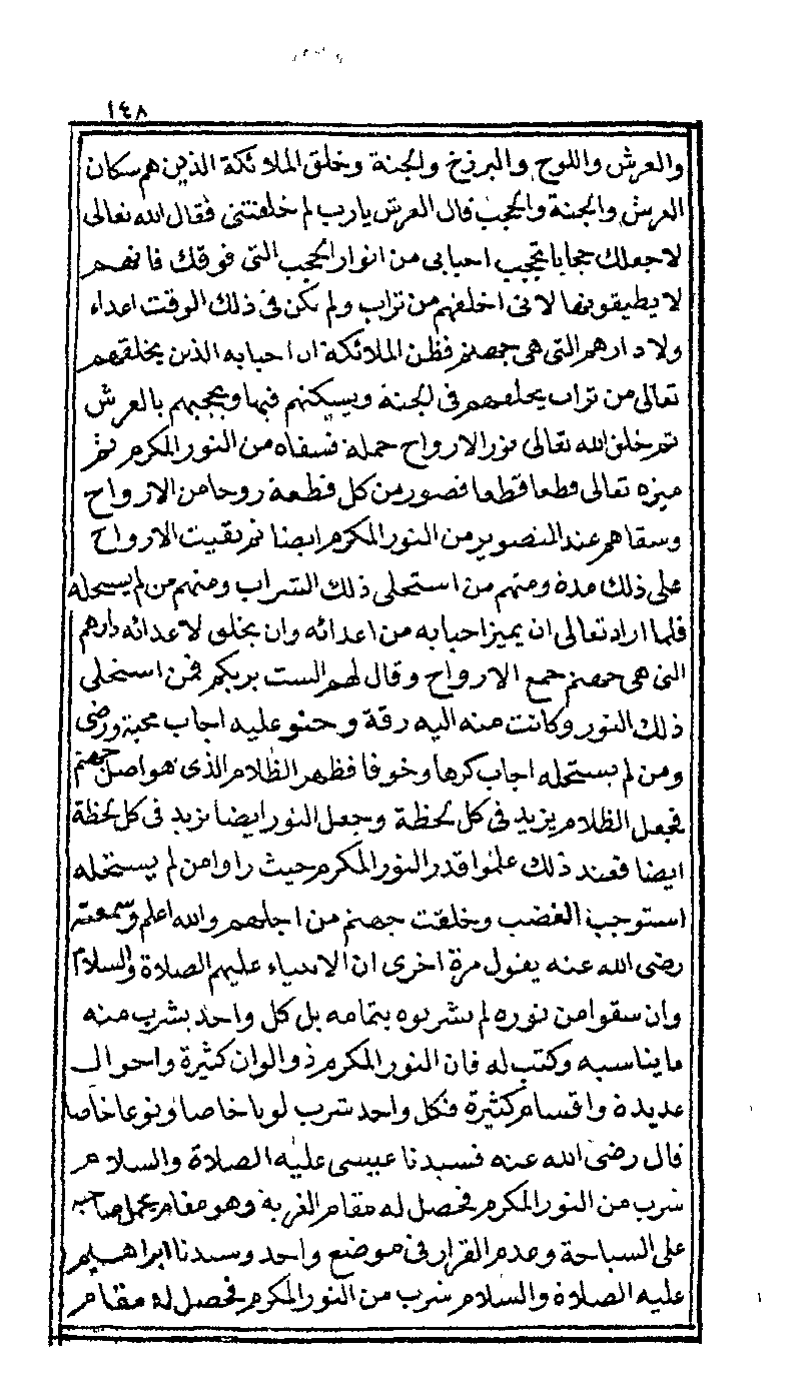 ١٤٨
والعرش واللوح والبرزخ والجنة وخلق الملائكة الذين هم سكان
العرش والجنة والحجب قال العرش يارب لم خلقتنى فقال الله تعالى
لاجعلك حجابا تحجب احبابى من انوار الحجب التى فوقك فانهم
لا يطيقونها لانى اخلقهم من تراب ولم يكن فى ذلك الوقت اعداء
ولا دارهم التى هى جهنم فظن الملائكة ان احبابه الذين يخلقهم
تعالى من تراب يخلقهم فى الجنة ويسكنهم فيها ويحجبهم بالعرش
ثم خلق الله تعالى نور الارواح جملة فسقاه من النور المكرم ثم
ميزه تعالى قطعا قطعا فصور من كل قطعة روحا من الارواح
وسقاهم عند التصوير من النور المكرم ايضا ثم بقيت الارواح
على ذلك مدة ومنهم من استحلى ذلك الشراب ومنهم من لم يستحله
فلما اراد تعالى ان يميز احبابه من اعدائه وان يخلق لاعدائه دارهم
التى هى جهنم جمع الارواح وقال لهم الست بربكم فمن استحلى
ذلك النور وكانت منه اليه رقة وحنو عليه اجاب محبة ورضى
ومن لم يستحله اجاب كرها وخوفا فظهر الظلام الذى هو اصل جهنم
فجعل الظلام يزيد فى كل لحظة وجعل النور ايضا يزيد فى كل لحظة
ايضا فعند ذلك علموا قدر النور المكرم حيث راوا من لم يستحله
استوجب الغضب وخلقت جهنم من اجلهم والله اعلم وسمعته
رضى الله عنه يقول مرة اخرى ان الانبياء عليهم الصلاة والسلام
وان سقوا من نوره لم يشربوه بتمامه بل كل واحد يشرب منه
ما يناسبه وكتب له فان النور المكرم ذو الوان كثيرة واحوال
عديدة واقسام كثيرة فكل واحد شرب لونا خاصا ونوعا خاصا
قال رضى الله عنه فسيدنا عيسى عليه الصلاة والسلام
شرب من النور المكرم فحصل له مقام الغربة وهو مقام يحمل صاحبه
على السياحة وعدم القرار فى موضع واحد وسيدنا ابراهيم
عليه الصلاة والسلام شرب من النور المكرم فحصل له مقام